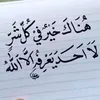 هُنَاكَ خَيْرٌ فِي كُلِّ شَرٍّ
لَا أَحَدَ يَعْرِفُهُ إِلَّا اللّٰه